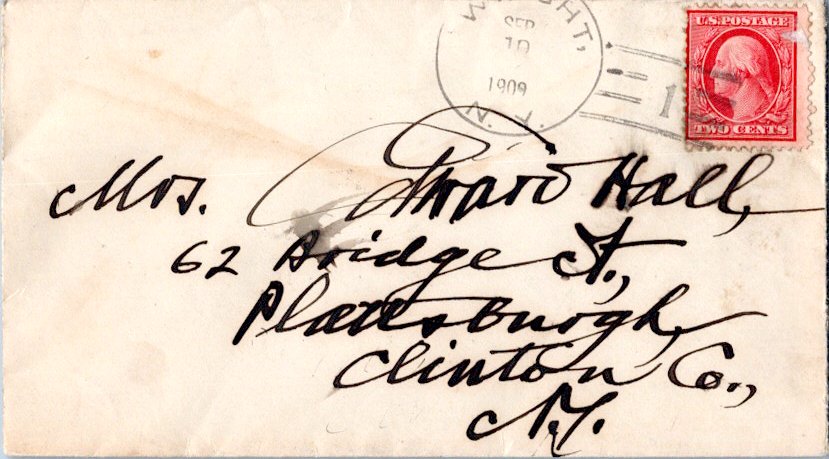 SEP
10
1909
1
U.S. POSTAGE
TWO CENTS
Mrs. Edward Hall,
62 Bridge St.,
Plattsburgh,
Clinton Co.,
N.Y.